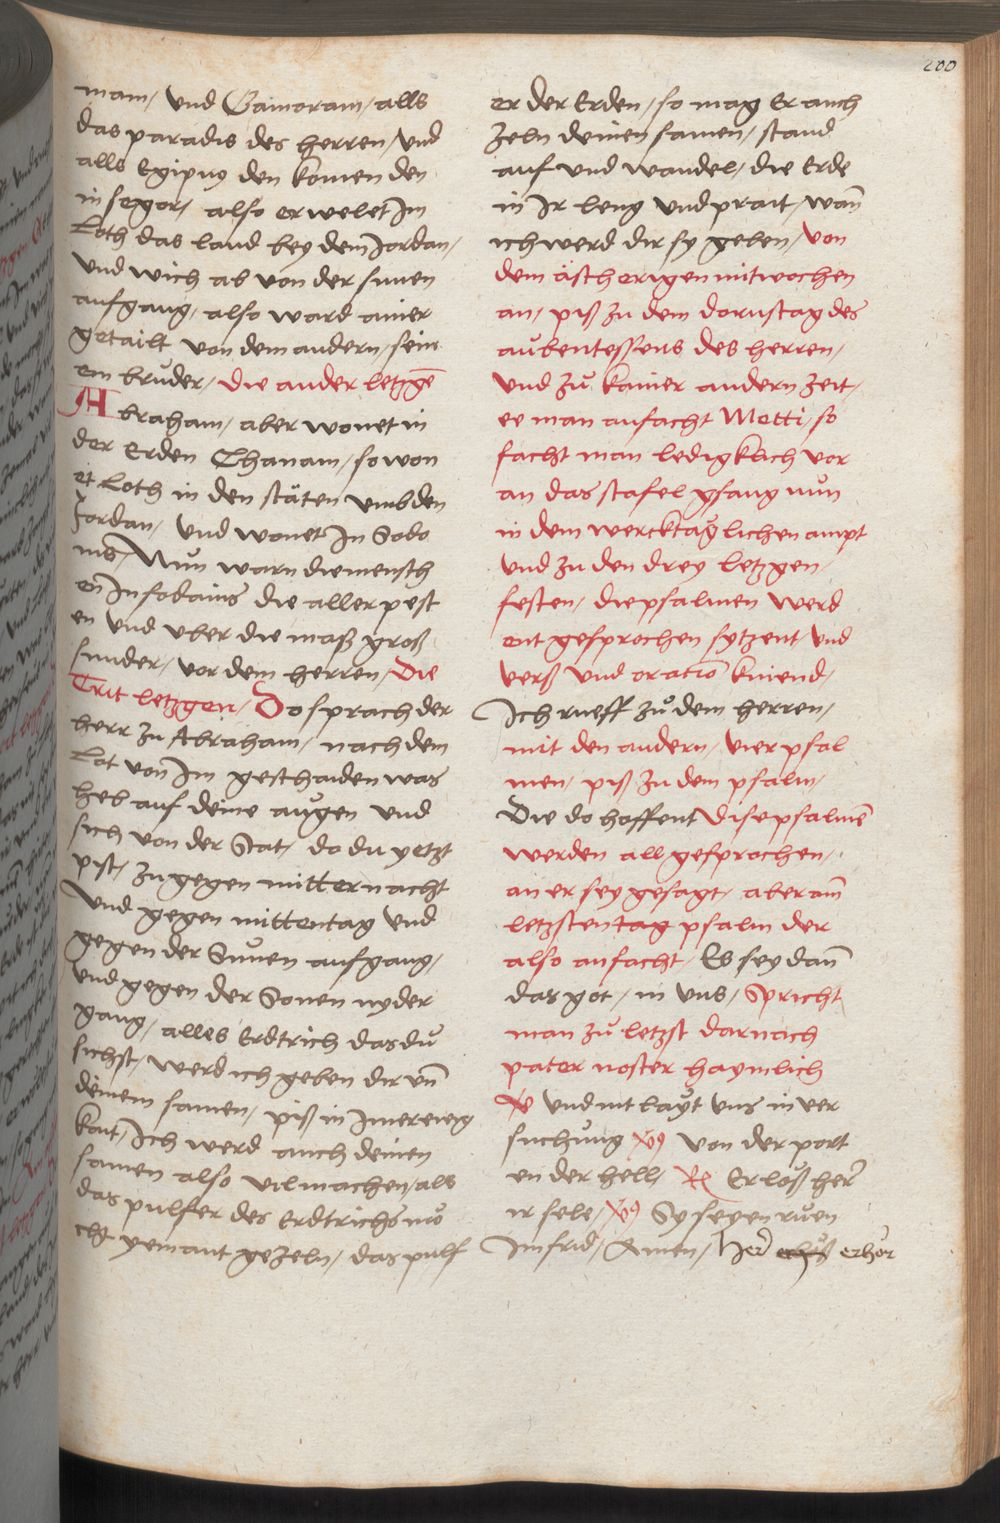 200
mam / Vnd Gamoram / alls
das paradis des herren / Vnd
alls Egiptus den komenden
in segor / also erwelet Im
Loth das land bey dem Jordan /
Vnd wich ab von der sunen
aufgang / also ward ainer
getailt von dem andern / sein
em bruder / die ander letzgē
Abraham / aber wonet in
der Erden Chanam / so won
et Loth in den stäten vmb den
Jordan / Vnd wonet In Sodo
mis / Nun warn die mensch
en In sodamis die aller pest
en Vnd vber die mass gross
sunder / vor dem herren / Die
Trit letzgen / Do sprach der
herr zu Abraham / nach dem
Lot von Im geschaiden was
heb auf deine augen Vnd
sich von der Stat / do du yetzt
pist / zu gegen mitternacht
Vnd gegen mittentag Vnd
gegen der Sunen aufgang /
Vnd gegen der Sonen nyder
gang / alles Erdtrich das du
sichst / werd ich geben dir vñ
deinem samen / piß in Imer ewig
kait / Ich werd auch deinen
samen also vil machen / als
das pulfer des Erdtrichs mö
cht yemant gezeln / das pulf
er der Erden / so mag Er auch
zeln deinen samen / stand
auf Vnd wandel / die Erde
in Ir leng Vnd prait / wañ
ich werd dir sy geben / Von
dem äscherigen mitwochen
an / piß zu dem dornstag des
aubentessens des herren /
Vnd zů kainer andern zeit /
ee man anfacht Metti / so
facht man ledigklich vor
an das stafel gsang nun
in dem wercktaglichen ampt
Vnd zu den drey letzgen
festen / die psalmen werd
ent gesprochen sytzent / Vnd
verß Vnd oratio kniend /
Ich rueff zů dem herren /
mit den andern / vier psal
men / piß zu dem psalm /
Die do hoffent Dise psalmē
werden all gesprochen /
an er sey gesagt / aber am
letzsten tag psalm der
also anfacht / Es sey dañ
das got / in vns / Spricht
man zů letzst darnach
pater noster haymlich
Vnd nit layt vns in ver
suchung von der port
en der hell / Erlöß her
ir sele / Sy seyen ruen
Im frid / Amen / Her erhör